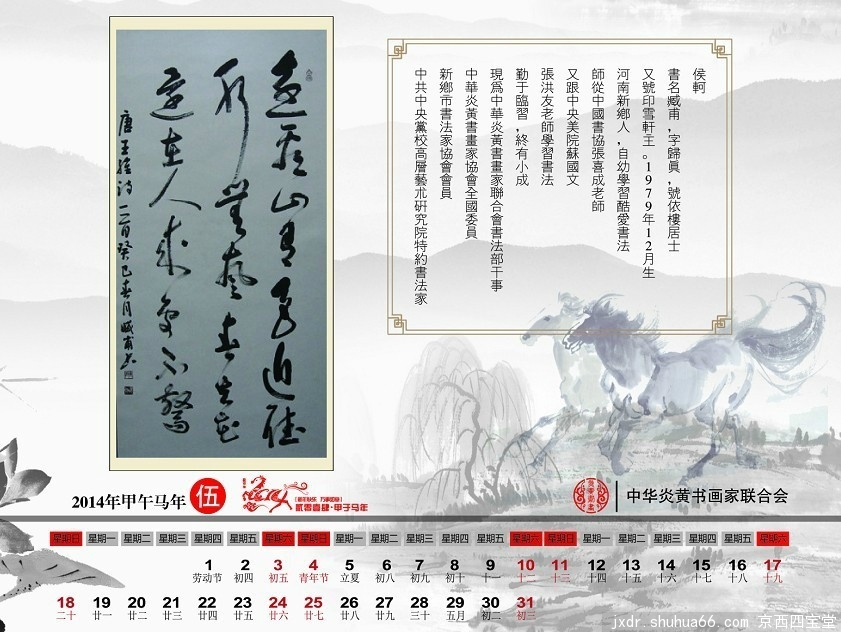 侯軻
書名臧甫,字歸眞,號依樓居士
又號印雪軒主。1979年12月生
河南新鄉人,自幼學習酷愛書法
師從中國書協張喜成老師
又跟中央美院蘇國文
張洪友老師學習書法
勤于臨習,終有小成
現爲中華炎黃書畫家聯合會書法部干事
中華炎黃書畫家協會全國委員
新鄉市書法家協會會員
中共中央黨校高層藝术研究院特約書法家
遠看山有色近聽
水無聲春去花
還在人來鳥不驚
唐王維詩一首癸巳春月臧甫書
2014年甲午马年 伍
貳零壹肆·甲子马年
中华炎黄书画家联合会
星期日 星期一 星期二 星期三 星期四 星期五 星期六 星期日 星期一 星期二 星期三 星期四 星期五 星期六 星期日 星期一 星期二 星期三 星期四 星期五 星期六
1 2 3 4 5 6 7 8 9 10 11 12 13 14 15 16 17
劳动节 初四 初五 青年节 立夏 初八 初九 初十 十一 十二 十三 十四 十五 十六 十七 十八 十九
18 19 20 21 22 23 24 25 26 27 28 29 30 31
二十 廿一 廿二 廿三 廿四 廿五 廿六 廿七 廿八 廿九 廿九 五月 初二 初三
jxdr.shuhua66.com 京西四宝堂